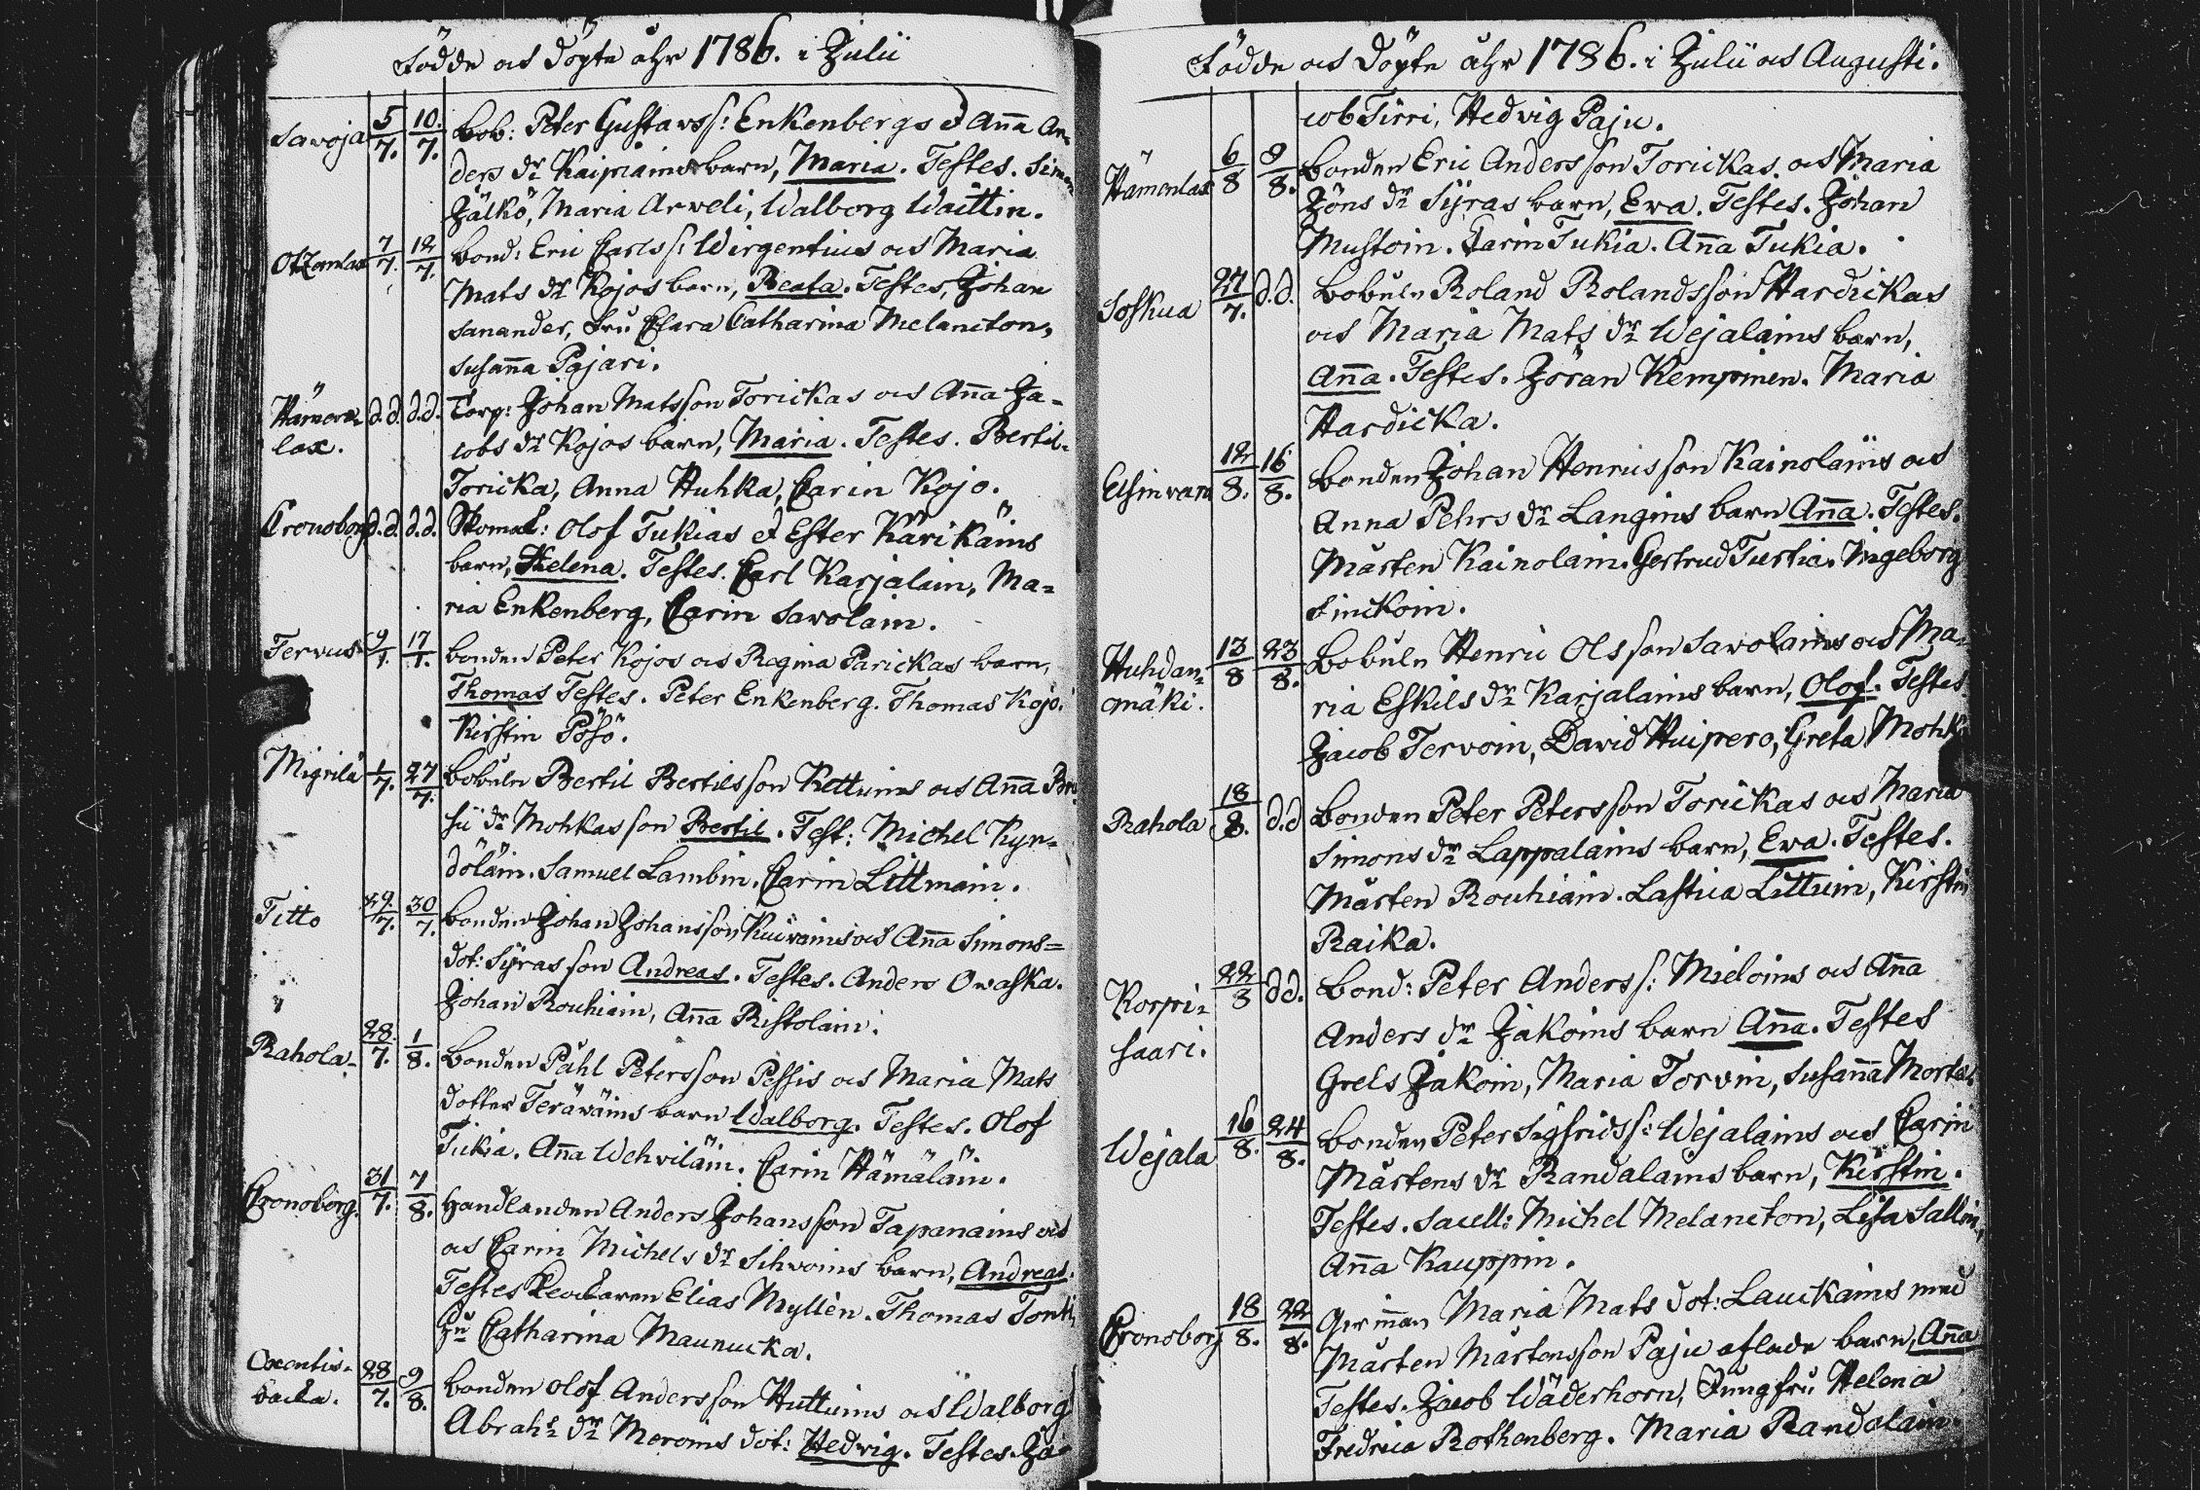 Födde och Döpte åhr 1786. i Julii
Savoja 5/7. 10./7. Bob: Peter Gustavs s: Enkenbergs & Aña An-
ders dr Kaipiains barn, Maria. Testes. Simon
Jälkö, Maria Arweli, Walborg Waittin.
Otzanlax 7/7. 12/7. bond: Eric Carls s: Wirgentius och Maria
Mats dr Kojos barn, Beata. Testes, Johan
Sanander, Fru Clara Catharina Melancton,
Susaña Pajari.
Hämeen- d.d. d.d. Torp: Johan Matsson Torickas och Aña Ja-
lax. cobs dr Kojos barn, Maria. Testes. Bertil
Toricka, Anna Huhka, Carin Kojo.
Cronoborg d.d. d.d. Skomak: Olof Tukias & Ester Kärikäins
barn, Helena. Testes. Carl Karjalain, Ma-
ria Enkenberg, Carin Savolain.
Tervus 9/7. 17/7. bonden Peter Kojos och Regina Parickas barn,
Thomas Testes. Peter Enkenberg. Thomas Kojo.
Kirstin Pösö.
Migrilä 1/7. 27/7. Bobuln Bertil Bertilsson Kettuins och Aña Bru-
sii dr Mohkas son Bertil. Test: Michel Kyn-
döläin. Samuel Lambin. Carin Littmain.
Titto 29./7. 30/7. bonden Johan Johansson Kuivains och Aña Simons=
dot: Syras son Andreas. Testes. Anders Owaska.
Johan Rouhiain, Aña Ristolain.
Rahola. 28./7. 1/8. bonden Påhl Petersson Pessis och Maria Mats
dotter Teräväins barn Walborg. Testes. Olof
Tukia. Aña Wehviläin. Carin Hämäläin.
Cronoborg. 31/7. 7/8. Handlanden Anders Johansson Tapanains och
och Carin Michels dr Sihvoins barn, Andreas.
Testes Klockaren Elias Myllèn. Thomas Tonti,
Ju Catharina Maunucka.
Oxentis- 28/7. 9/8. bonden Olof Andersson Huttuins och Walborg
backa. Abrahs dr Meroins dot: Hedwig. Testes. Ja-
Födde och Döpte åhr 1786. i Julii och Augusti.
cob Tirri, Hedwig Paju.
Hämenlax 6/8 9/8. Bonden Eric Andersson Torickas och Maria
Jöns dr Syras barn, Eva. Testes. Johan
Mustoin. Carin Tukia. Aña Tukia.
Soskua 27/7. d.d. Bobuln Roland Rolandsson Hardickas
och Maria Mats dr Wejalains barn,
Aña. Testes. Jöran Kempinen. Maria
Hardicka.
Elsinvara 12/8. 16/8. bonden Johan Henricsson Kainolains och
Anna Pehrs dr Langins barn Aña. Testes.
Mårten Kainolain. Gertrud Turtia. Ingeborg
Sinckoin.
Huhdan- 13/8 23/8. Bobuln Henric Olsson Savolains och Ma-
mäki. ria Eskils dr Karjalains barn, Olof. Testes.
Jacob Tervoin, David Huipero, Greta Mohka
Rahola 18/8. d.d bonden Peter Petersson Torickas och Maria
Simons dr Lappalains barn, Eva. Testes.
Mårten Rouhiain. Lastica Littuin, Kirstin
Raika.
Korpi- 22/8 dd. Bond: Peter Anders s: Mieloins och Aña
saari. Anders dr Jakoins barn Aña. Testes
Grels Jakoin, Maria Torvin, Susaña
Wejala 16/8. 24/8. bonden Peter Sigfrids s: Wejalains och Carin
Mårtens dr Randalains barn, Kirstin.
Testes. Sacell: Michel Melancton, Lisa Sallin,
Aña Kauppin.
Cronoborg 18/8. 22/8. Qwiñan Maria Mats dot: Lauckains med
Mårten Mårtensson Paju aflade barn, Aña
Testes. Jacob Wäderhorn, Jungfru Helena
Fredrica Rothenberg. Maria Randalain.